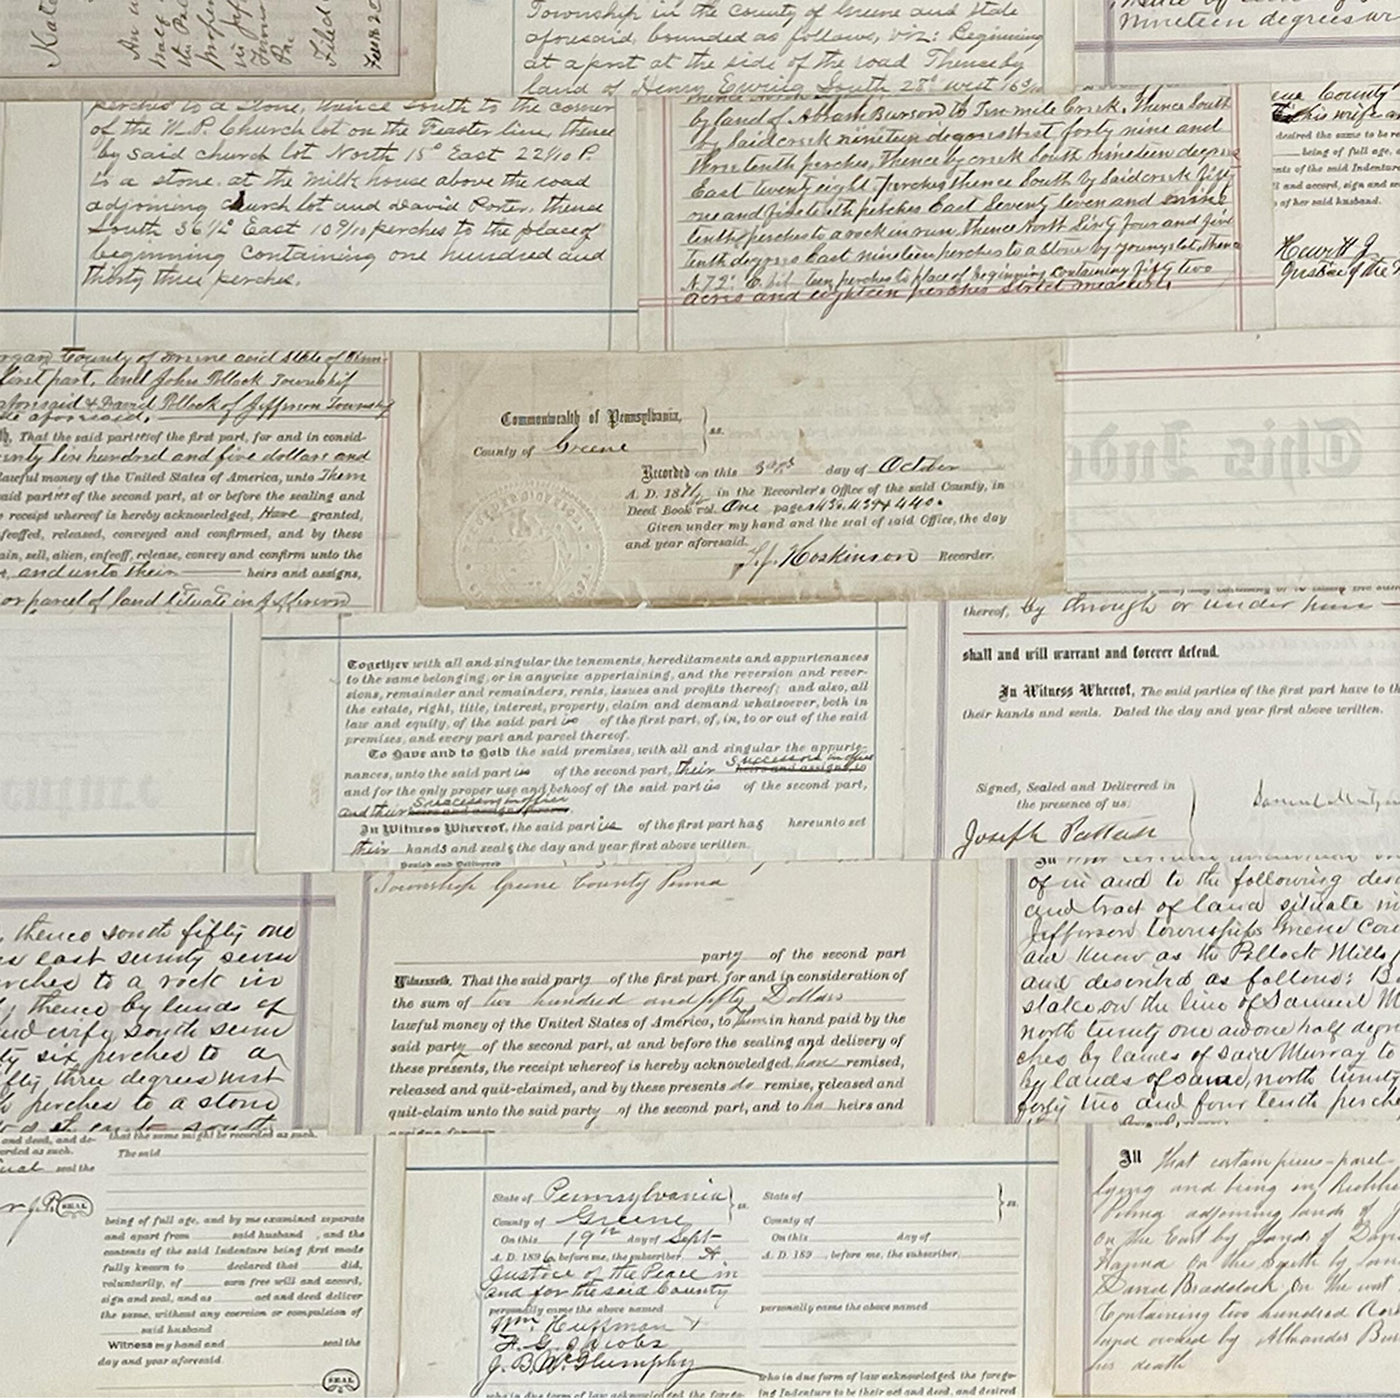 Township in the County of Greene and State
aforesaid, bounded as follows, viz: Beginning
at a post at the side of the road Thence by
land of Henry Ewing South 28° west 163
nineteen degrees
Filed
perches to a stone, thence South to the corner
of the M.P. Church lot on the Feaster line, thence
by said church lot North 15° East 22 4/10 P.
to a stone. at the milk house above the road
adjoining church lot and David Porter, thence
South 36 1/2° East 10 9/10 perches to the place of
beginning Containing one hundred and
thirty three perches.
by land of Abram Burson to Ten mile Creek. Thence South
by said creek nineteen degrees West forty nine and
three tenth perches, Thence by creek South nineteen degrees
East twenty eight perches thence South by said creek fifty
one and five tenth perches East Seventy Seven and nine
tenths perches to a rock in run, thence North Sixty four and five
tenth degrees East nineteen perches to a stone by Youngs lot, thence
N. 72° E. teen perches to place of Beginning, containing fifty two
acres and eighteen perches strict measure.
County
his wife
desired the same to be re
being of full age,
nts of the said Indenture
and accord, sign and se
of her said husband.
Justice of the
County of Greene and State of Penn
first part, and John Pollock Township
aforesaid & David Pollock of Jefferson Township
aforesaid.
That the said parties of the first part, for and in consid-
Six hundred and five dollars and
lawful money of the United States of America, unto Them
said parties of the second part, at or before the sealing and
receipt whereof is hereby acknowledged, Have granted,
feoffed, released, conveyed and confirmed, and by these
ain, sell, alien, enfeoff, release, convey and confirm unto the
and unto their heirs and assigns,
or parcel of land Situate in Jefferson
Commonwealth of Pennsylvania,
County of Greene ss.
Recorded on this 3rd day of October
A. D. 18 in the Recorder's Office of the said County, in
Deed Book vol. One pages 438, 439 & 440.
Given under my hand and the seal of said Office, the day
and year aforesaid.
Hoskinson Recorder.
This Inde
Together with all and singular the tenements, hereditaments and appurtenances
to the same belonging, or in anywise appertaining, and the reversion and rever-
sions, remainder and remainders, rents, issues and profits thereof; and also, all
the estate, right, title, interest, property, claim and demand whatsoever, both in
law and equity, of the said parties of the first part, of, in, to or out of the said
premises, and every part and parcel thereof.
To Have and to Hold the said premises, with all and singular the appurte-
nances, unto the said parties of the second part, their Successors in office heirs and assigns to
and for the only proper use and behoof of the said parties of the second part,
and their Successors in office heirs and assigns forever.
In Witness Whereof, the said parties of the first part has hereunto set
their hands and seals the day and year first above written.
Sealed and Delivered
thereof, by through or under him
shall and will warrant and forever defend.
In Witness Whereof, The said parties of the first part have to th
their hands and seals. Dated the day and year first above written.
Signed, Sealed and Delivered in
the presence of us:
Joseph
Samuel
thence south fifty one
east seventy seven
rches to a rock in
thence by lands of
and wife south seven
ty six perches to a
fifty three degrees west
perches to a stone
south
Township Greene County Penna
party of the second part
Witnesseth, That the said party of the first part, for and in consideration of
the sum of two hundred and fifty Dollars
lawful money of the United States of America, to them in hand paid by the
said party of the second part, at and before the sealing and delivery of
these presents, the receipt whereof is hereby acknowledged, have remised,
released and quit-claimed, and by these presents do remise, released and
quit-claim unto the said party of the second part, and to his heirs and
assigns forever
of in and to the following des
and tract of land situate in
Jefferson Township Greene Cou
and know as the Pollock Mills
and described as follows: B
stake on the line of Samuel M
north twenty one and one half degr
ches by lands of said Murray to
by lands of same, north twenty
forty two and four tenth perche
and deed, and de-
orded as such.
seal the
SEAL
that the same might be recorded as such.
The said
being of full age, and by me examined separate
and apart from said husband , and the
contents of the said Indenture being first made
fully known to declared that did,
voluntarily, of own free will and accord,
sign and seal, and as act and deed deliver
the same, without any coercion or compulsion of
said husband
Witness my hand and seal the
day and year aforesaid.
SEAL
State of Pennsylvania ss.
County of Greene
On this 19th day of Sept
A. D. 1896, before me, the subscriber, A
Justice of the Peace in
and for the said County
personally came the above named
Wm. Huffman &
F. G. Jacobs
J. B. McGlumphy
who in due form of law acknowledged the forego-
State of ss.
County of
On this day of
A. D. 189 , before me, the subscriber,
personally came the above named
who in due form of law acknowledged the forego-
ing Indenture to be their act and deed, and desired
All that certain piece-parcel
lying and being in Richhi
Penna adjoining lands of
on the East by lands of Davi
Hanna on the South by
David Braddock on the west
Containing two hundred Acre
land owned by Alexander Bur
his death